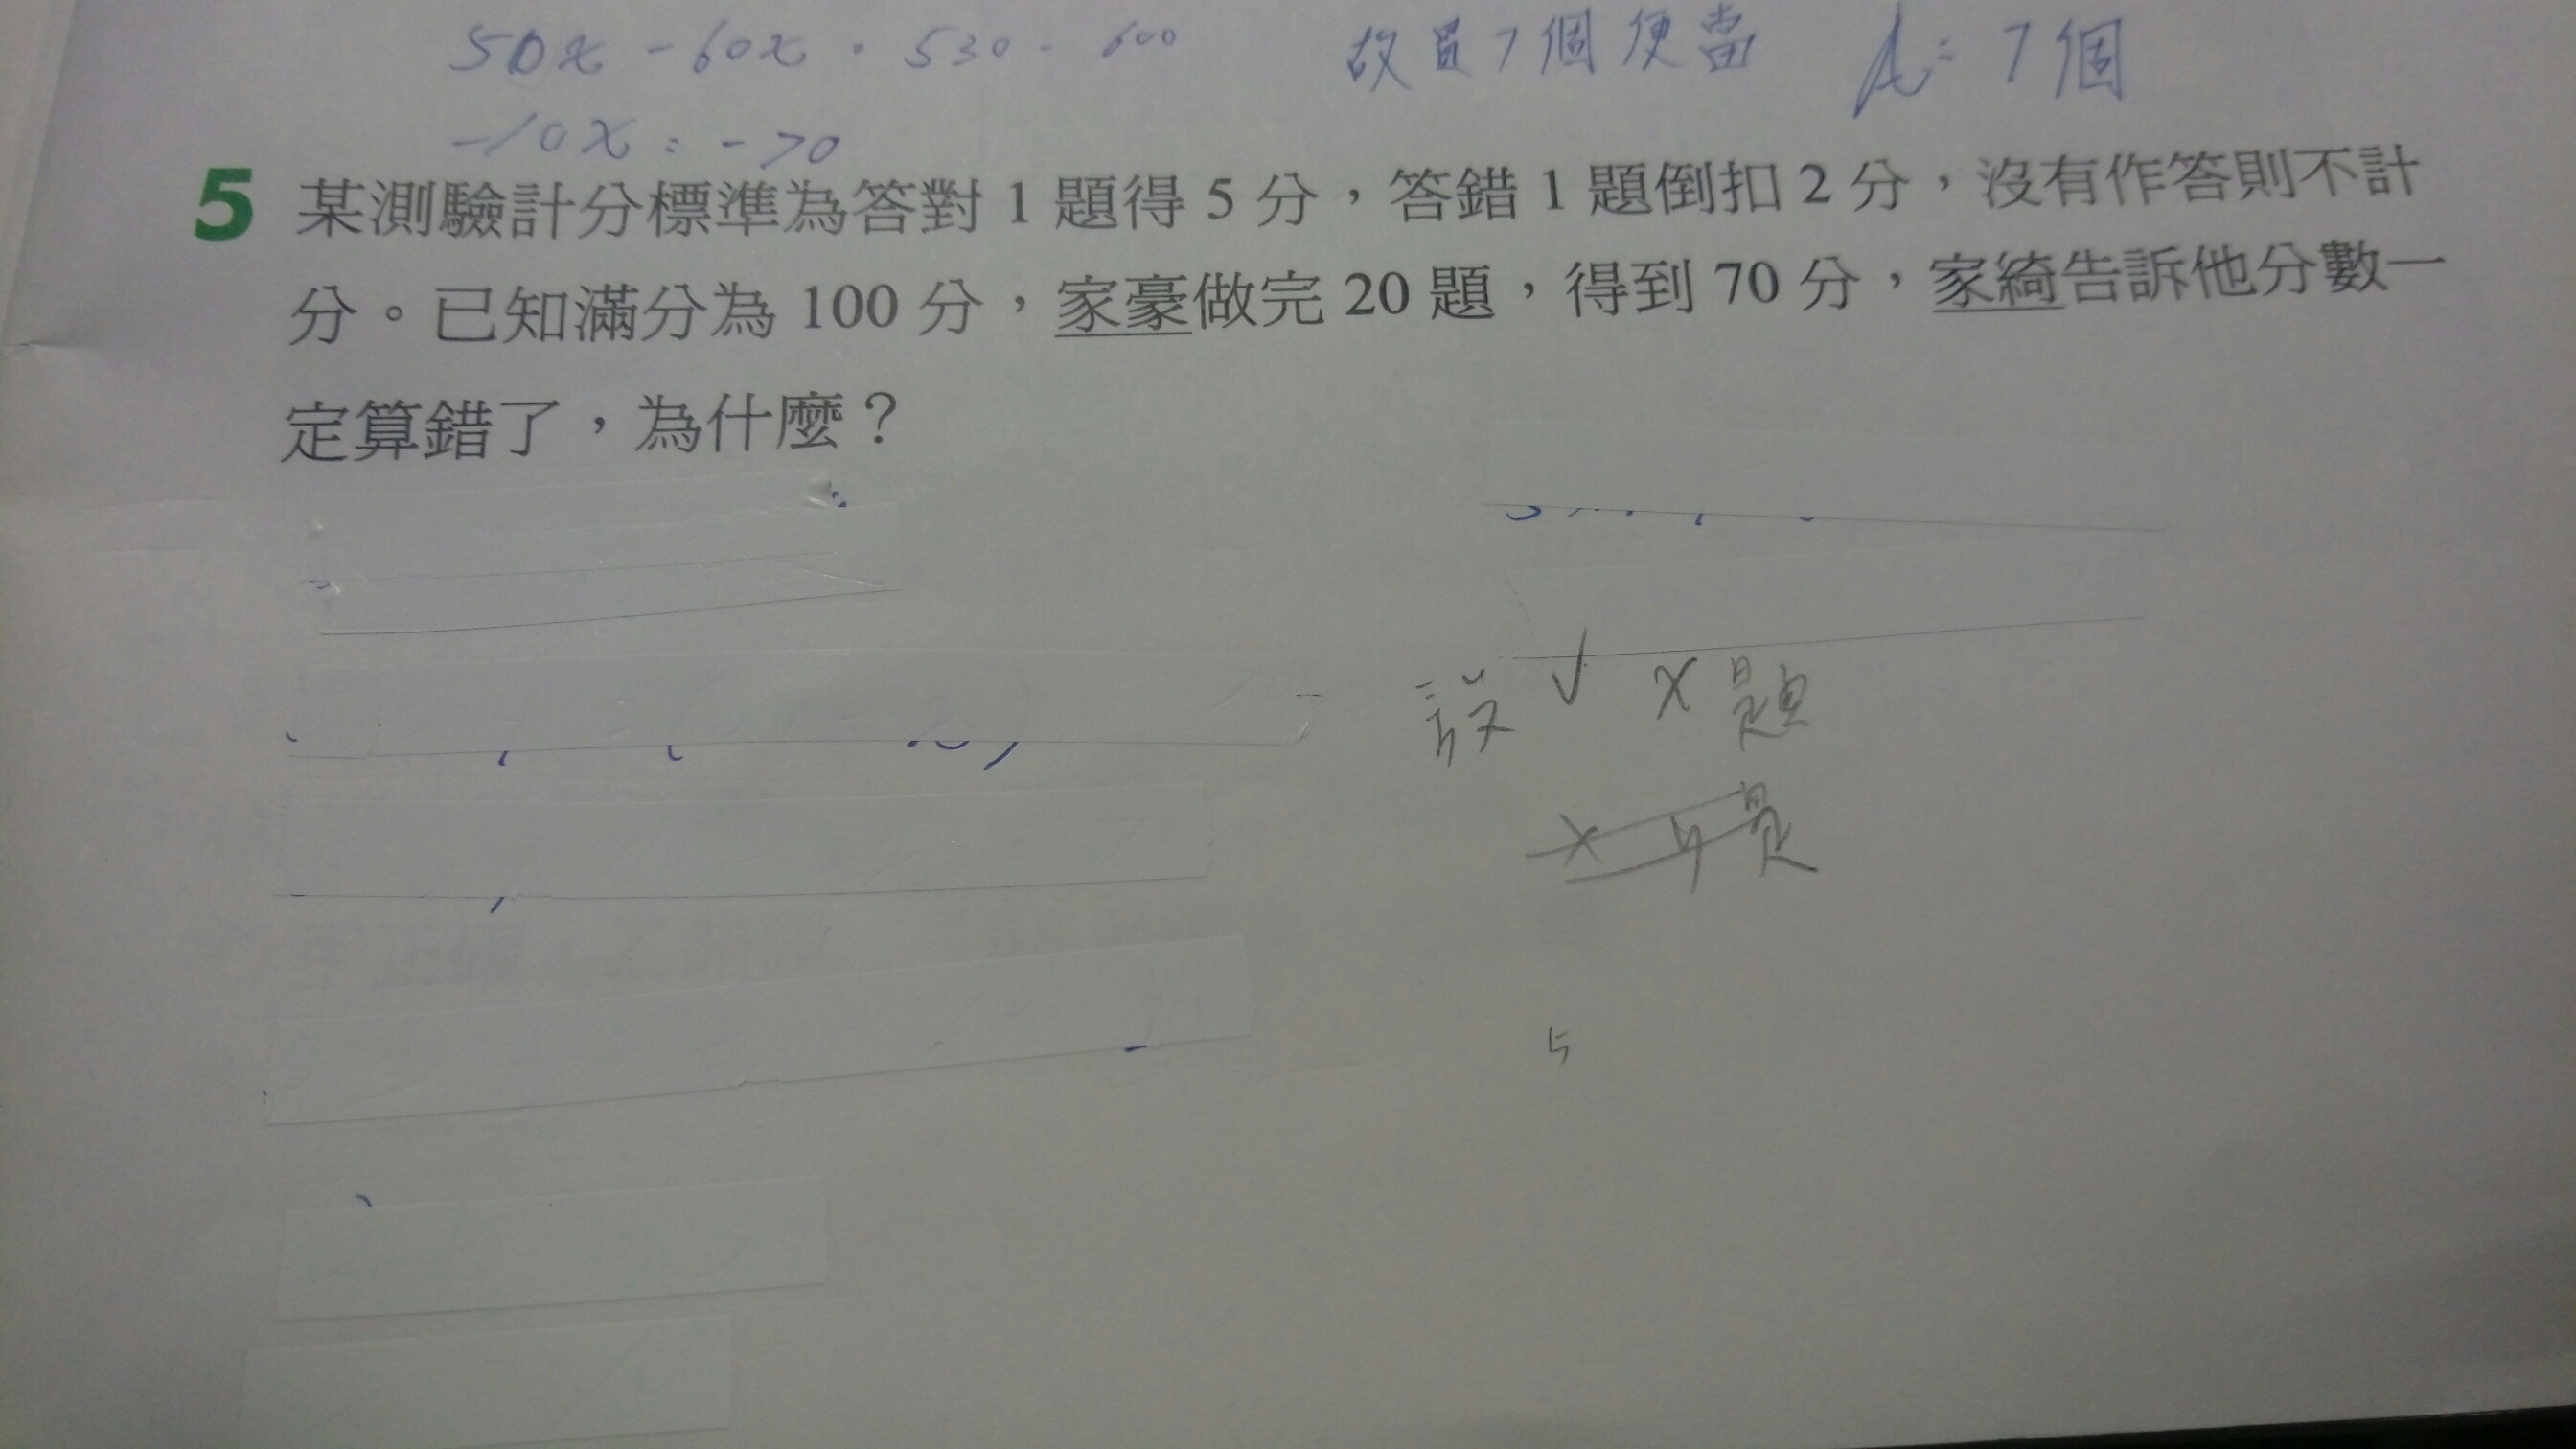 50x - 60x = 530 - 600
故買7個便當 A: 7個
-10x = -70
5 某測驗計分標準為答對1題得5分，答錯1題倒扣2分，沒有作答則不計
分。已知滿分為100分，家豪做完20題，得到70分，家綺告訴他分數一
定算錯了，為什麼？
設 √ x 題
x y 是
5